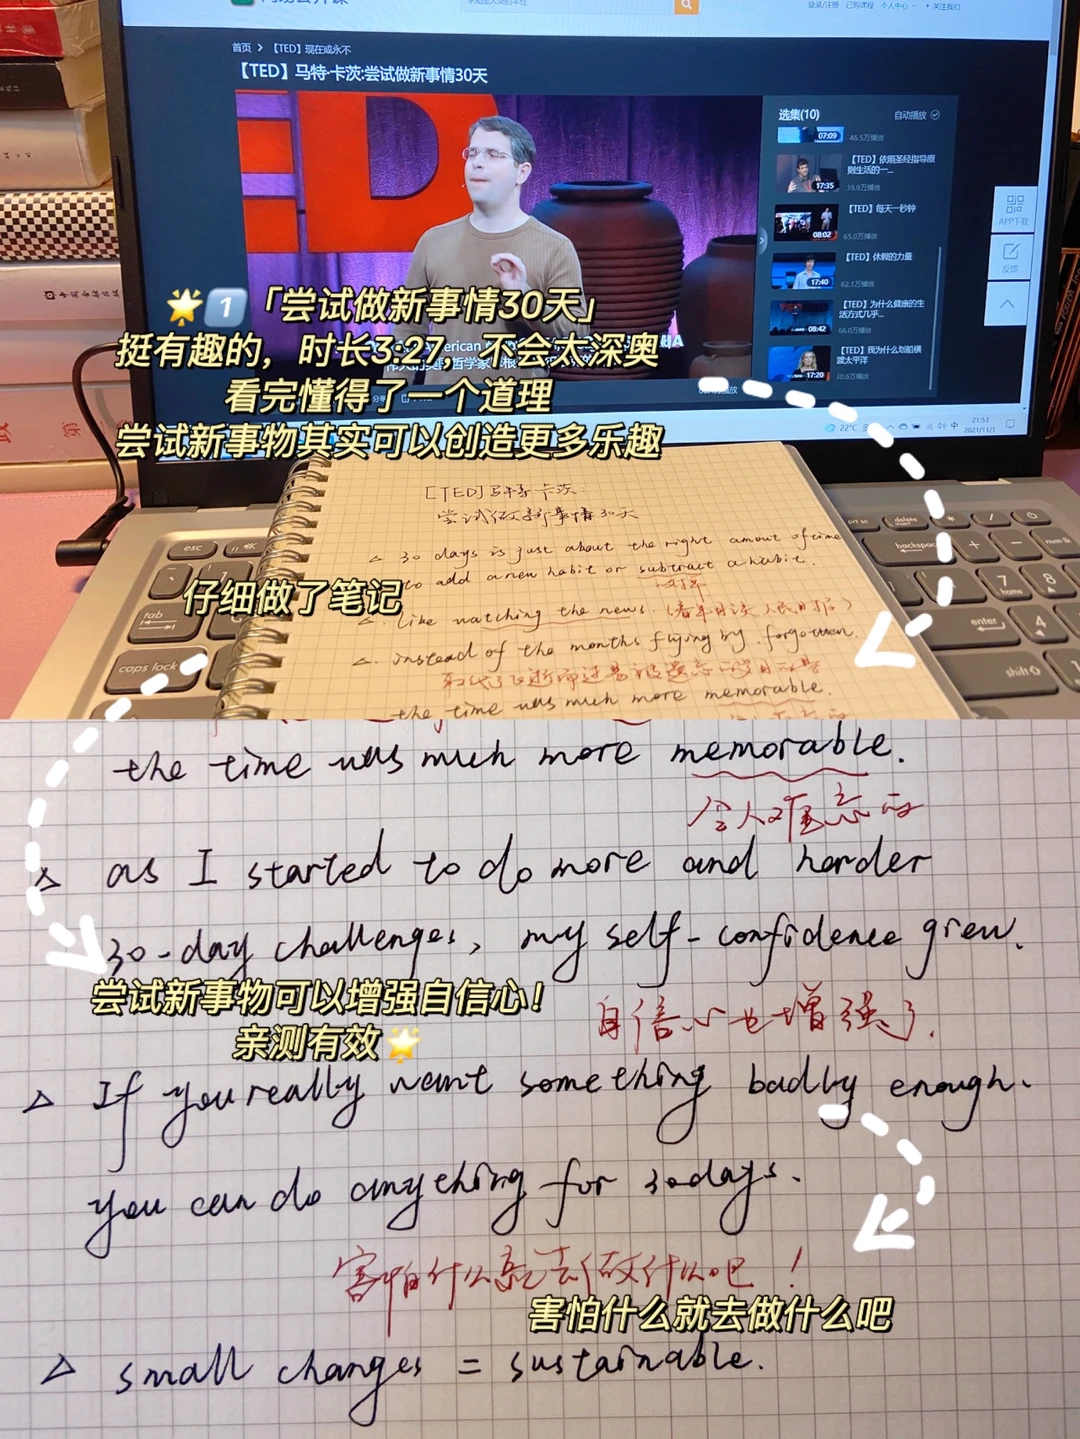 首页 > 【TED】现在或永不
【TED】马特·卡茨:尝试做新事情30天
选集(10)
自动播放
07:09
46.5万播放
【TED】依照圣经指导原则生活的一...
17:35
39.9万播放
【TED】每天一秒钟
08:02
65.0万播放
【TED】休假的力量
17:40
62.1万播放
【TED】为什么健康的生活方式几乎...
08:42
66.0万播放
【TED】我为什么划船横渡太平洋
17:20
30.6万播放
APP下载
反馈
登录/注册 已购课程 个人中心 + 关注我们
American
22°C
中
21:53
2021/11/1
1「尝试做新事情30天」
挺有趣的，时长3:27，不会太深奥
看完懂得了一个道理
尝试新事物其实可以创造更多乐趣
[TED]马特·卡茨:
尝试做新事情30天
△ 30 days is just about the right amout of time
to add a new habit or subtract a habit.
仔细做了笔记
△. like watching the news.
△. instead of the months flying by. forgotten.
the time was much more memorable.
esc
tab
caps lock
delete
backspace
num lk
home
enter
shift
7
8
4
the time was much more memorable.
令人难忘的
△ as I started to do more and harder
30-day challenges, my self-confidence grew.
尝试新事物可以增强自信心！
亲测有效
自信心也增强了.
△ If you really want something badly enough.
you can do anything for 30days.
害怕什么就去做什么吧！
害怕什么就去做什么吧
△ small changes = sustainable.